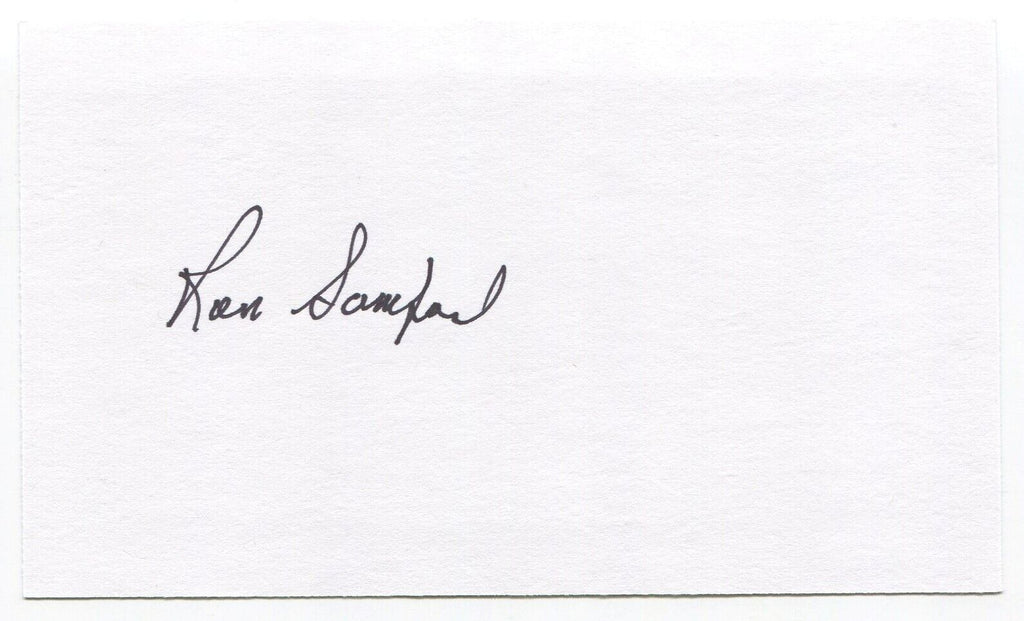 Ron Samford